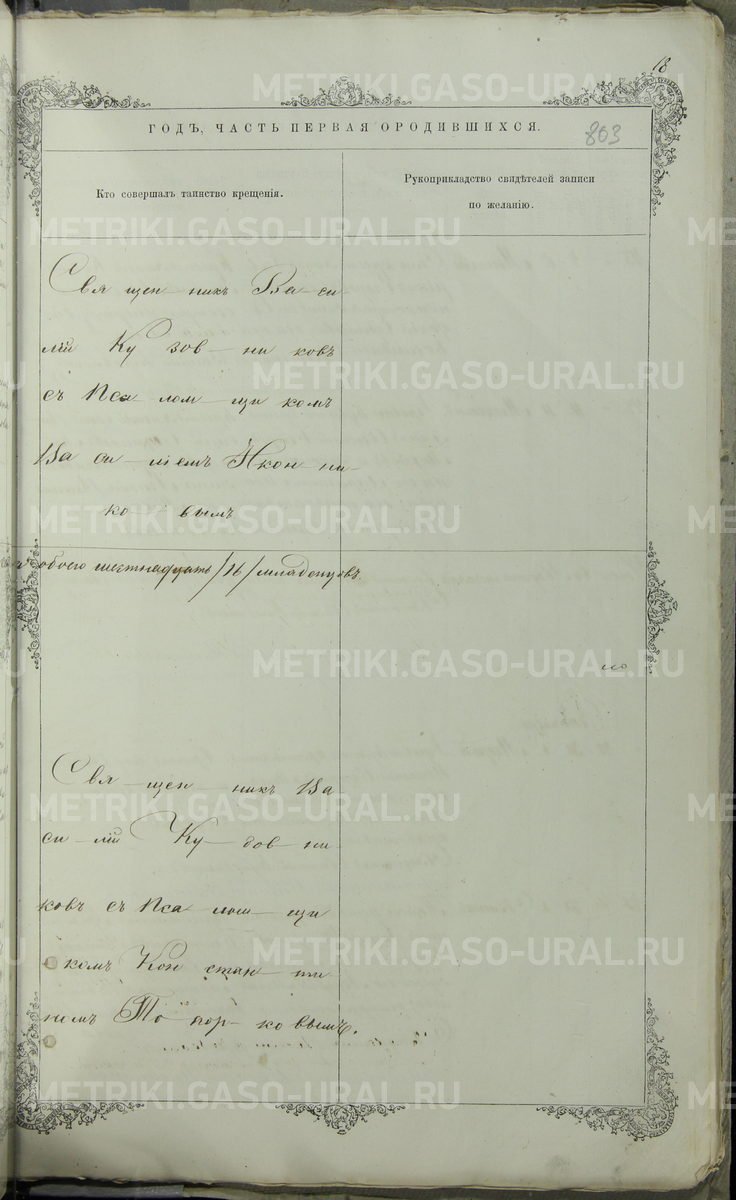 18
ГОДЪ, ЧАСТЬ ПЕРВАЯ О РОДИВШИХСЯ.
803
Кто совершалъ таинство крещенія.
Рукоприкладство свидѣтелей записи
по желанію.
Свя щен никъ Ва си
лій Ку зов ни ковъ
съ Пса лом щи комъ
Ва си ліемъ Икон ни
ко вымъ
обоего шестнадцать /16/ младенцовъ.
Свя щен никъ Ва
си лій Ку зов ни
ковъ съ Пса лом щи
комъ Кон стан ти
нимъ То пор ко вымъ.
METRIKI.GASO-URAL.RU